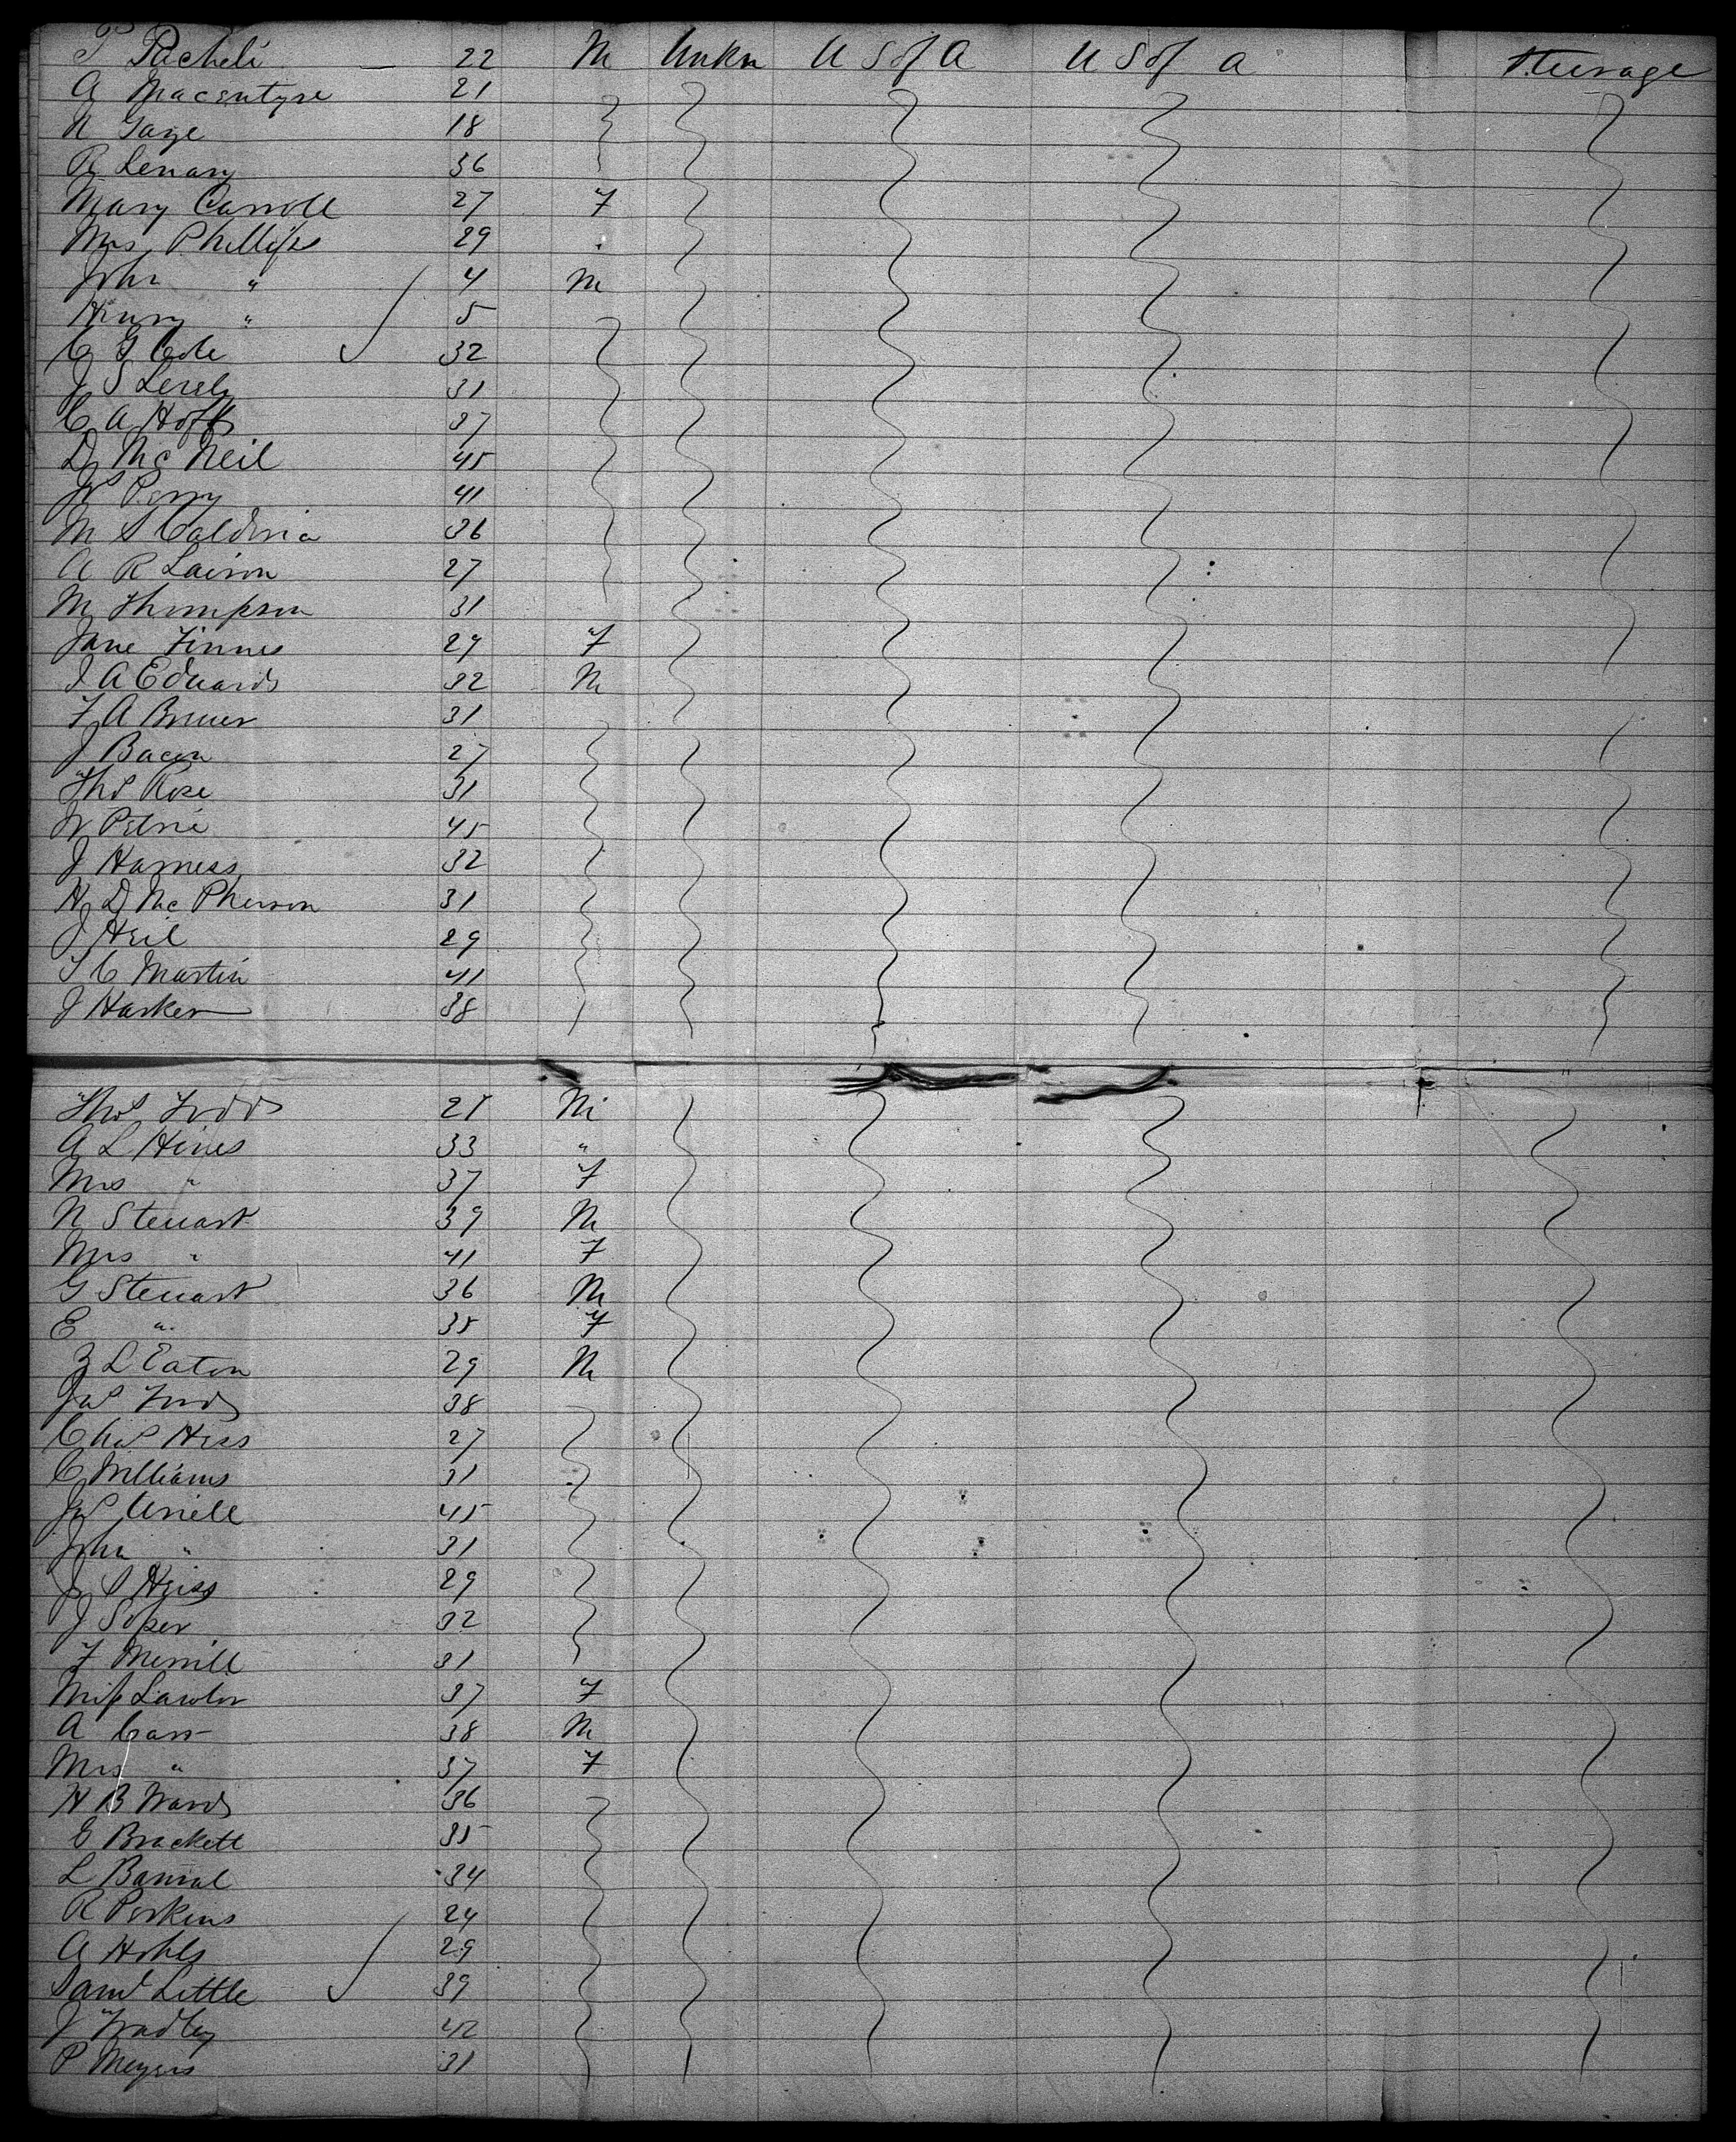 P Pacheli — 22 M Unkn U S of A U S of A Steerage
A Macentyre 21
N Gage 18
R Lenary 36
Mary Carroll 27 F
Mrs Phillips 29 "
John " 4 M
Henry " 5
C G Cole 32
J S Lerely 31
C A Hoffs 37
D McNeil 45
Js Perry 41
M S Calderia 36
A R Laison 27
M Thompson 31
Jane Finnes 29 F
J A Eduards 32 M
F A Bruer 31
J Bacon 27
Thos Rose 31
W Petrie 45
J Harness 32
H D McPherson 31
J Heil 29
T C Martin 41
J Harker 38
Thos Todd 21 M
A L Hines 33 "
Mrs " 37 F
N Steuart 39 M
Mrs " 41 F
G Steuart 36 M
E " 35 F
Z L Eaton 29 M
Jas Ford 38
Chas Hess 27
C Williams 31
Jas Uriell 45
John " 31
J S Heiss 29
J Soper 32
F Merrill 31
Miss Lawlor 37 F
A Carr 38 M
Mrs " 37 F
H B Ward 36
E Brackett 35
L Banral 34
R Perkins 24
A Hohls 29
Saml Little 39
J Bradley 42
P Meyers 31